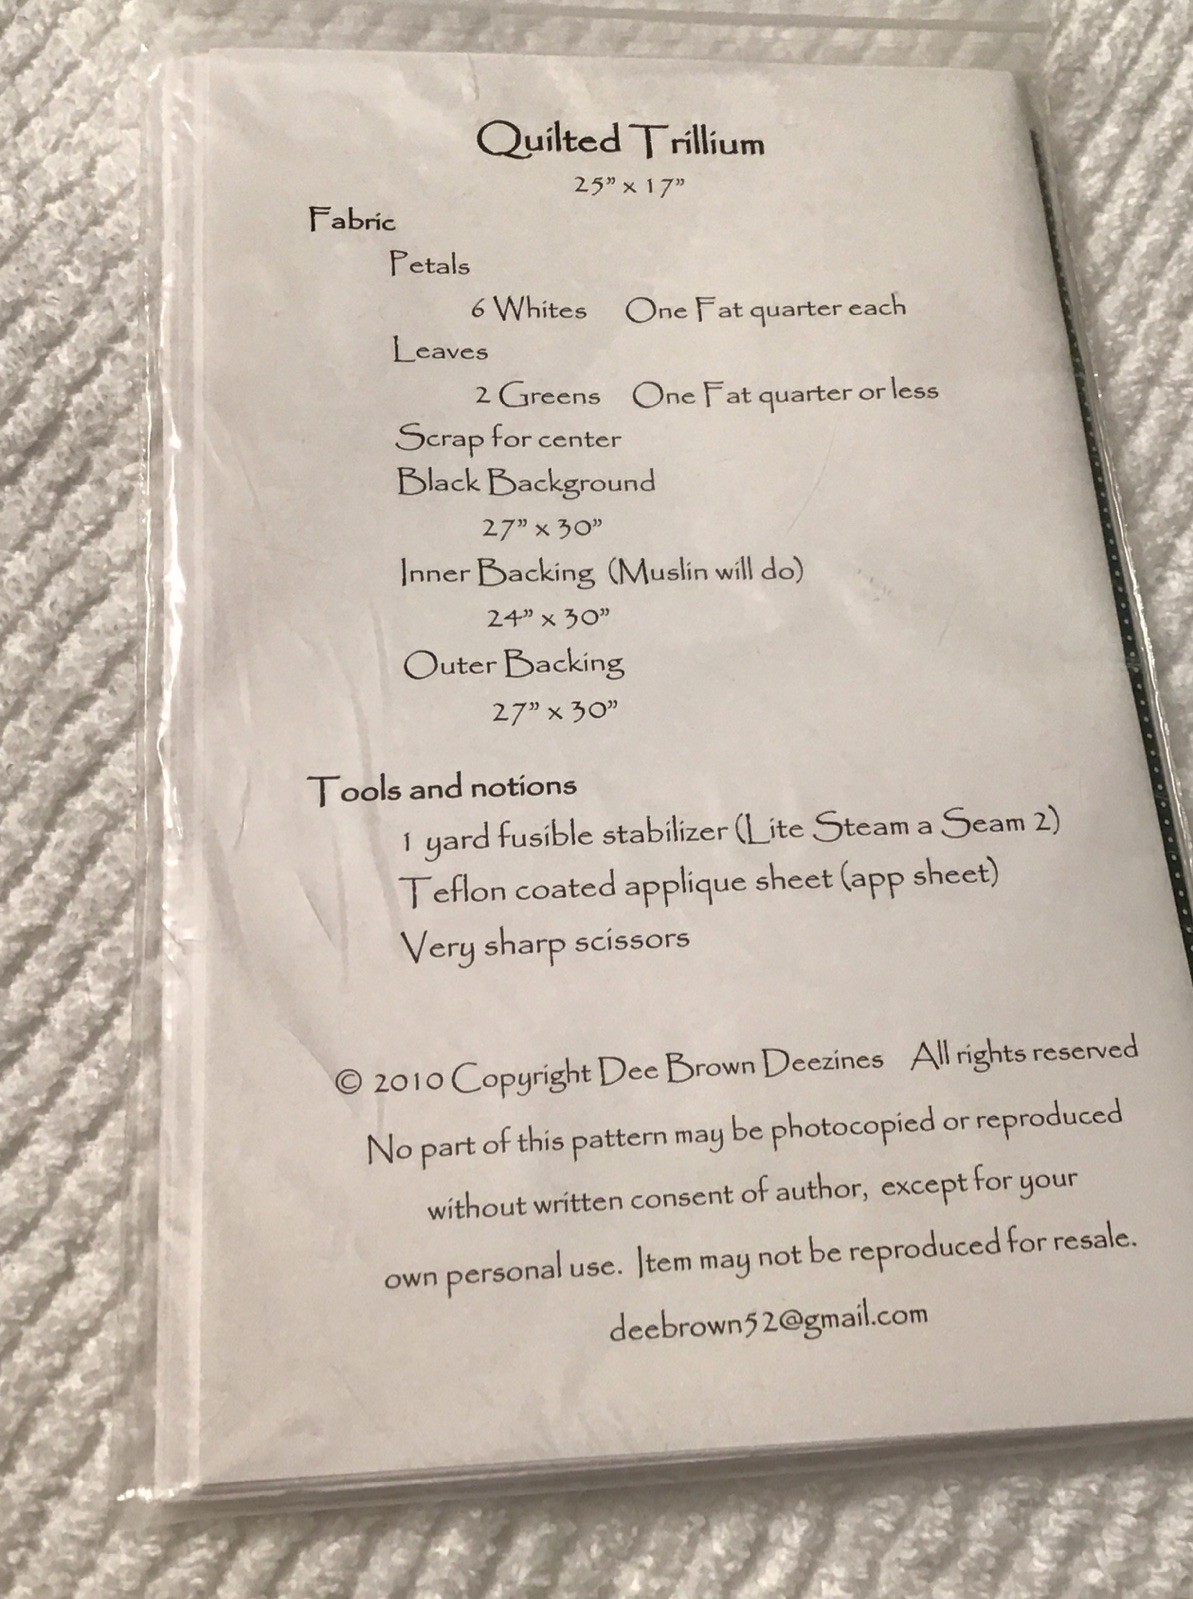 Quilted Trillium
25” x 17”
Fabric
Petals
6 Whites One Fat quarter each
Leaves
2 Greens One Fat quarter or less
Scrap for center
Black Background
27” x 30”
Inner Backing (Muslin will do)
24” x 30”
Outer Backing
27” x 30”
Tools and notions
1 yard fusible stabilizer (Lite Steam a Seam 2)
Teflon coated applique sheet (app sheet)
Very sharp scissors
© 2010 Copyright Dee Brown Deezines All rights reserved
No part of this pattern may be photocopied or reproduced
without written consent of author, except for your
own personal use. Item may not be reproduced for resale.
deebrown52@gmail.com